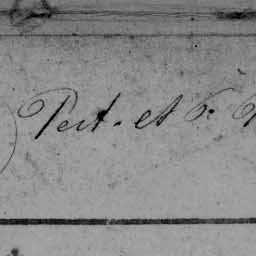 Pert. et F.